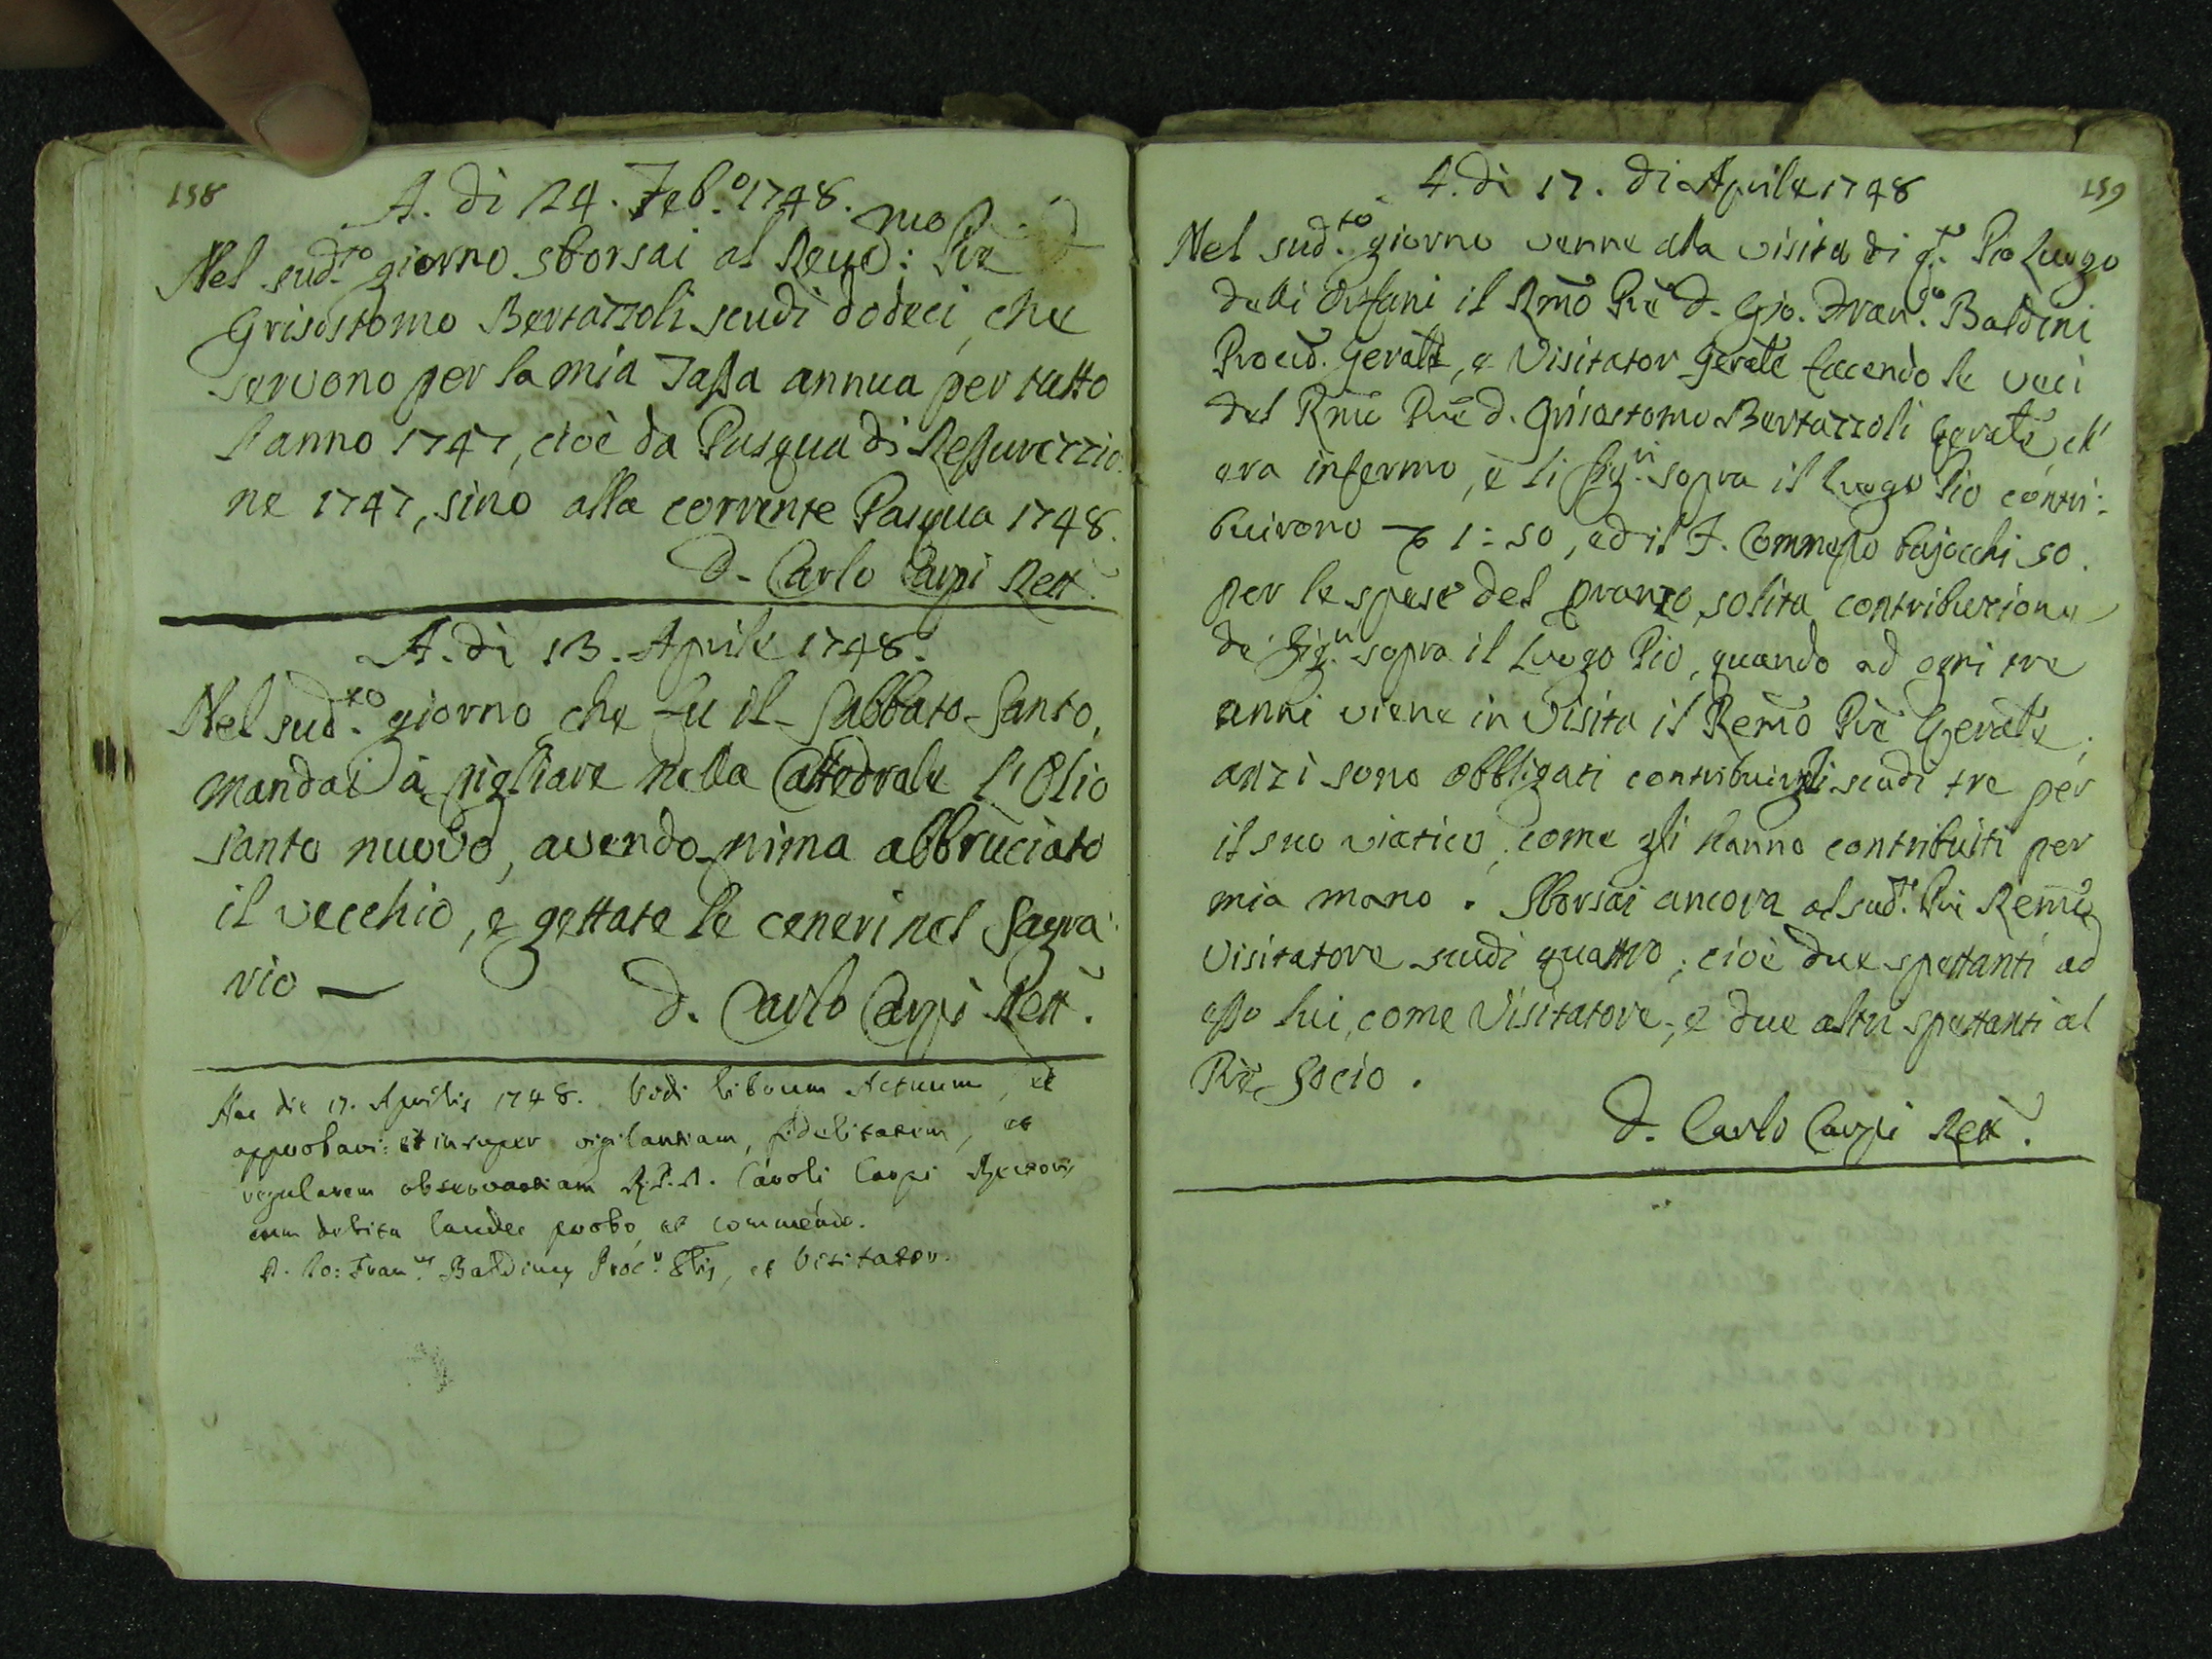 158
A. di 24. Feb.o 1748.
Nel sud.to giorno sborsai al Reud:mo Pre D.
Grisostomo Bertazzoli scudi dodeci, che
servono per la mia Tassa annua per tutto
l'anno 1747, cioè da Pasqua di Ressurezzio:
ne 1747, sino alla corrente Pasqua 1748.
D. Carlo Carpi Rett.
A. di 13. Aprile 1748.
Nel sud.to giorno, che fu il Sabbato Santo,
mandai à pigliare nella Cattedrale l'Olio
santo nuovo, avendo prima abbruciato
il vecchio, e gettate le ceneri nel Sagra:
rio —
D. Carlo Carpi Rett.
Hac die 17. Aprilis 1748. Vidi librum Actuum, et
approbavi: et insuper vigilantiam, fidelitatem, et
regularem observantiam R.P.D. Caroli Carpi Rectoris
cum debita laude probo, et commendo.
D. Jo: Fran.us Baldinus Proc.r Glis, et Visitator.
159
A. di 17. di Aprile 1748
Nel sud.to giorno venne alla visita di q.to Pio Luogo
delli Orfani il Rmo Pre D. Gio. Fran.co Baldini
Procud. Gerale, e Visitator Gerale facendo le veci
del Rmo Pre D. Grisostomo Bertazzoli Gerale, ch'
era infermo, e li Sig.ri sopra il Luogo Pio contri:
buirono 1:50, ed il F. Commesso bajocchi 50.
per le spese del pranzo, solita contribuzione
de' Sig.ri sopra il Luogo Pio, quando ad ogni tre
anni viene in Visita il Remo Pre Gerale;
anzi sono obbligati contribuirgli scudi tre per
il suo viatico, come gli hanno contribuiti per
mia mano. Sborsai ancora al sud.to Pre Remo
Visitatore scudi quattro; cioè due spettanti ad
esso lui, come Visitatore, e due altri spettanti al
Pre Socio.
D. Carlo Carpi Rett.